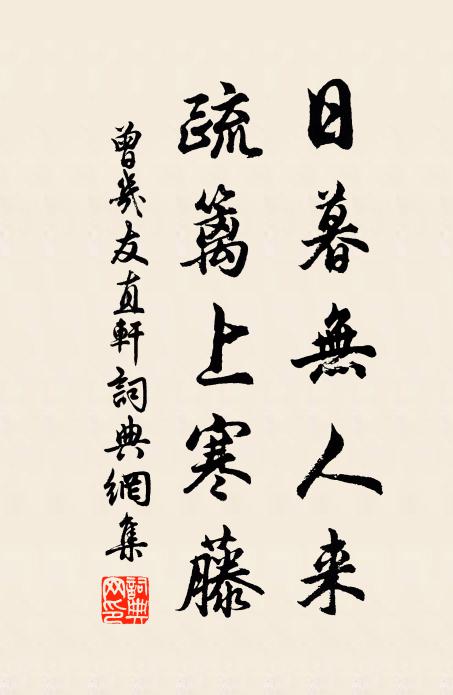 日暮無人来
疏籬上寒藤
曾幾友直軒詞典網集
詞典网印